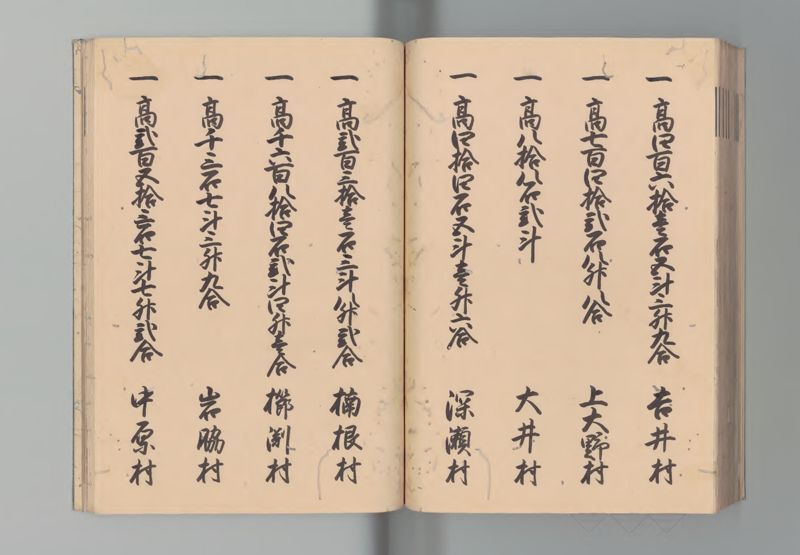 一 高四百六拾壹石五斗三升九合 吉井村
一 高七百四拾弐石八升八合 上大野村
一 高八拾八石弐斗 大井村
一 高四拾四石五斗壹升六合 深瀬村
一 高弐百三拾壹石三斗八升弐合 楠根村
一 高千六百八拾四石弐斗四升壹合 櫛渕村
一 高千三石七斗三升九合 岩脇村
一 高弐百五拾三石七斗七升弐合 中原村